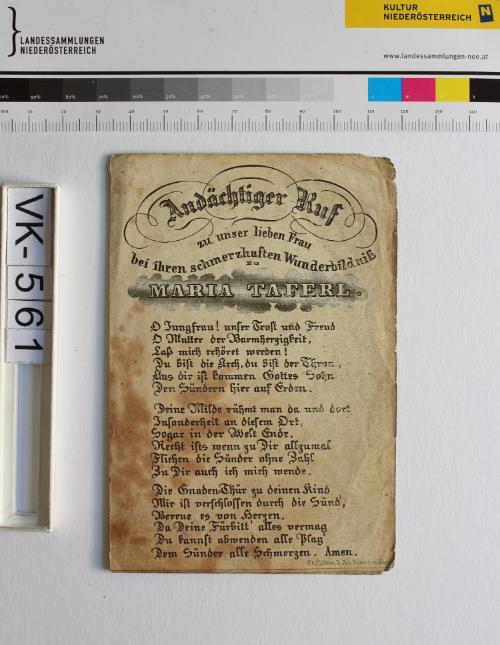 LANDESSAMMLUNGEN
NIEDERÖSTERREICH
KULTUR
NIEDERÖSTERREICH
www.landessammlungen-noe.at
VK-561
Andächtiger Ruf
zu unser lieben Frau
bei ihren schmerzhaften Wunderbildniß
zu
MARIA TAFERL.
O Jungfrau! unser Trost und Freud
O Mutter der Barmherzigkeit,
Laß mich erhöret werden!
Du bist die Arch, du bist der Thron,
Aus dir ist kommen Gottes Sohn
Den Sündern hier auf Erden.
Deine Milde rühmt man da und dort
Insonderheit an diesem Ort,
Sogar in der Welt Ende.
Recht ists wenn zu Dir allzumal
Fliehen die Sünder ohne Zahl
Zu Dir auch ich mich wende.
Die Gnaden-Thür zu deinen Kind
Mir ist verschlossen durch die Sünd,
Bereue es von Herzen,
Da Deine Fürbitt' alles vermag
Du kannst abwenden alle Plag
Dem Sünder alle Schmerzen. Amen.
St. Pölten b.